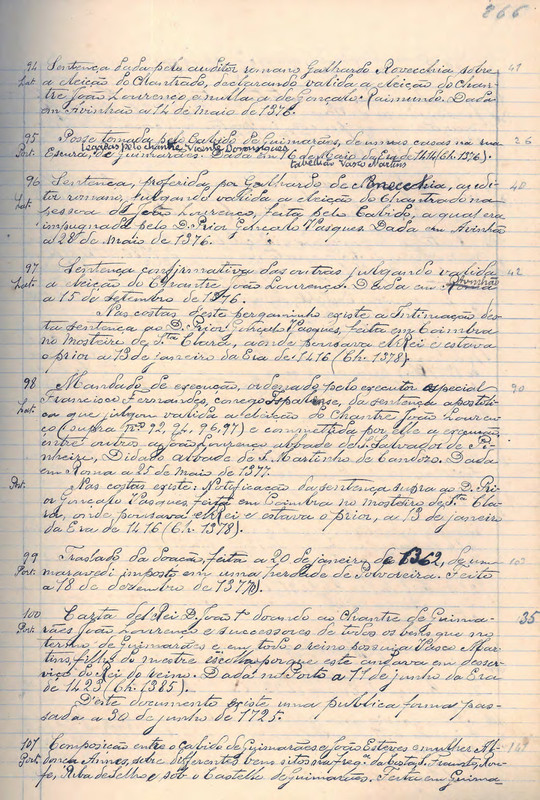 266
94 Sentença dada pelo auditor romano Galhardo Rovecchia sobre 41
Lat. a eleição do Chantrado, declarando valida a eleição do Chan-
tre João Lourenço e nulla a de Gonçalo Raimundo. Dada
em Avinhão a 14 de maio de 1376.
95 Posse tomada pelo Cabido de Guimarães, de umas casas na rua 26
legadas pelo chantre Vicente Domingues
Port. Escura, de Guimarães. Dada em 16 de Maio da Era de 1414 (Ch. 1376).
tabellião Vasco Martins
96 Sentença, proferida por Galhardo de Novecchia, audi- 40
Lat. tor romano, julgando valida a eleição do Chantrado na
pessoa de João Lourenço, feita pelo Cabido, a qual era
impugnada pelo D. Prior Gonçalo Vasques. Dada em Avinhão
a 28 de Maio de 1376.
97 Sentença confirmativa das outras julgando valida 42
Lat. a eleição do Chantre João Lourenço. Dada em Avinhão
a 15 de setembro de 1376.
Nas costas deste pergaminho existe a intimação des-
ta sentença ao D. Prior Gonçalo Vasques, feita em Coimbra
no Mosteiro de S.ta Clara, aonde pousava elRei e estava
o prior a 13 de janeiro da Era de 1416 (Ch. 1378).
98 Mandado de execução, ordenado pelo executor especial 90
Lat. Francisco Fernandes, conego Ispalense, da sentença apostoli-
ca que julgou valida a eleição do Chantre João Louren-
ço (supra Nos 92, 94, 96, 97) e commettida por elle a execução
entre outros a João Lourenço abbade de S. Salvador de Pi-
nheiro, Didaco abbade de S. Martinho de Candoso. Dada
em Roma a 25 de maio de 1377.
Port. Nas costas existe: Notificação da sentença supra ao D. Pri-
or Gonçalo Vasques, feita em Coimbra no mosteiro de S.ta Cla-
ra, onde pousava elRei e estava o prior, a 13 de janeiro
da Era de 1416 (Ch. 1378).
99 Traslado da doação, feita a 20 de janeiro de 1362, de um
Port. maravedi imposto em uma herdade de Polvoreira. Feito
a 18 de dezembro de
100 Carta del Rei D. João 1º doando ao Chantre de Guima- 35
Port. rães João Lourenço e successores de todos os bens que no
termo de Guimarães e em todo o reino possuia Vasco Mar-
tins, filho do mestre escola porque este andava em desser-
viço do Rei e do reino. Dada no Porto a 17 de junho da Era
de 1423 (Ch. 1385).
D'este documento existe uma publica forma pas-
sada a 30 de junho de 1725.
101 Composição entre o Cabido de Guimarães e João Esteves e mulher Al-
Port. donça Annes, sobre differentes bens sitos na freg.ª da
fe, Riba de Selho e sob o Castello de Guimarães. Feita em Guima-